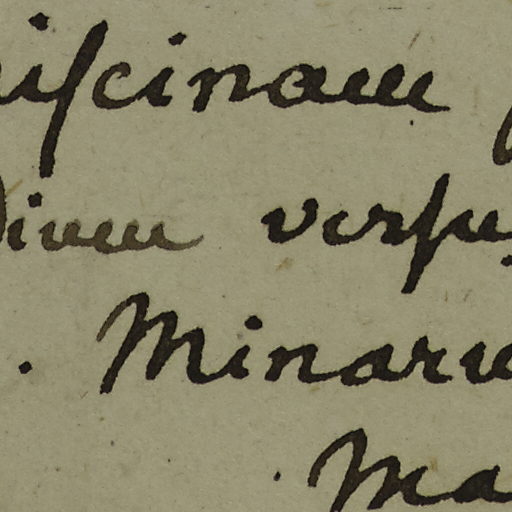 iſcinam
dium verſu
. Minaru
. Ma